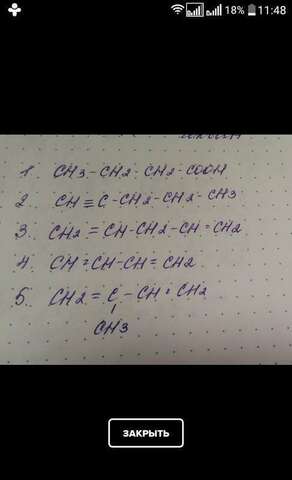 18% 11:48
1. CH3-CH2-CH2-COOH
2. CH≡C-CH2-CH2-CH3
3. CH2=CH-CH2-CH=CH2
4. CH=CH-CH=CH2
5. CH2=C-CH=CH2
CH3
ЗАКРЫТЬ